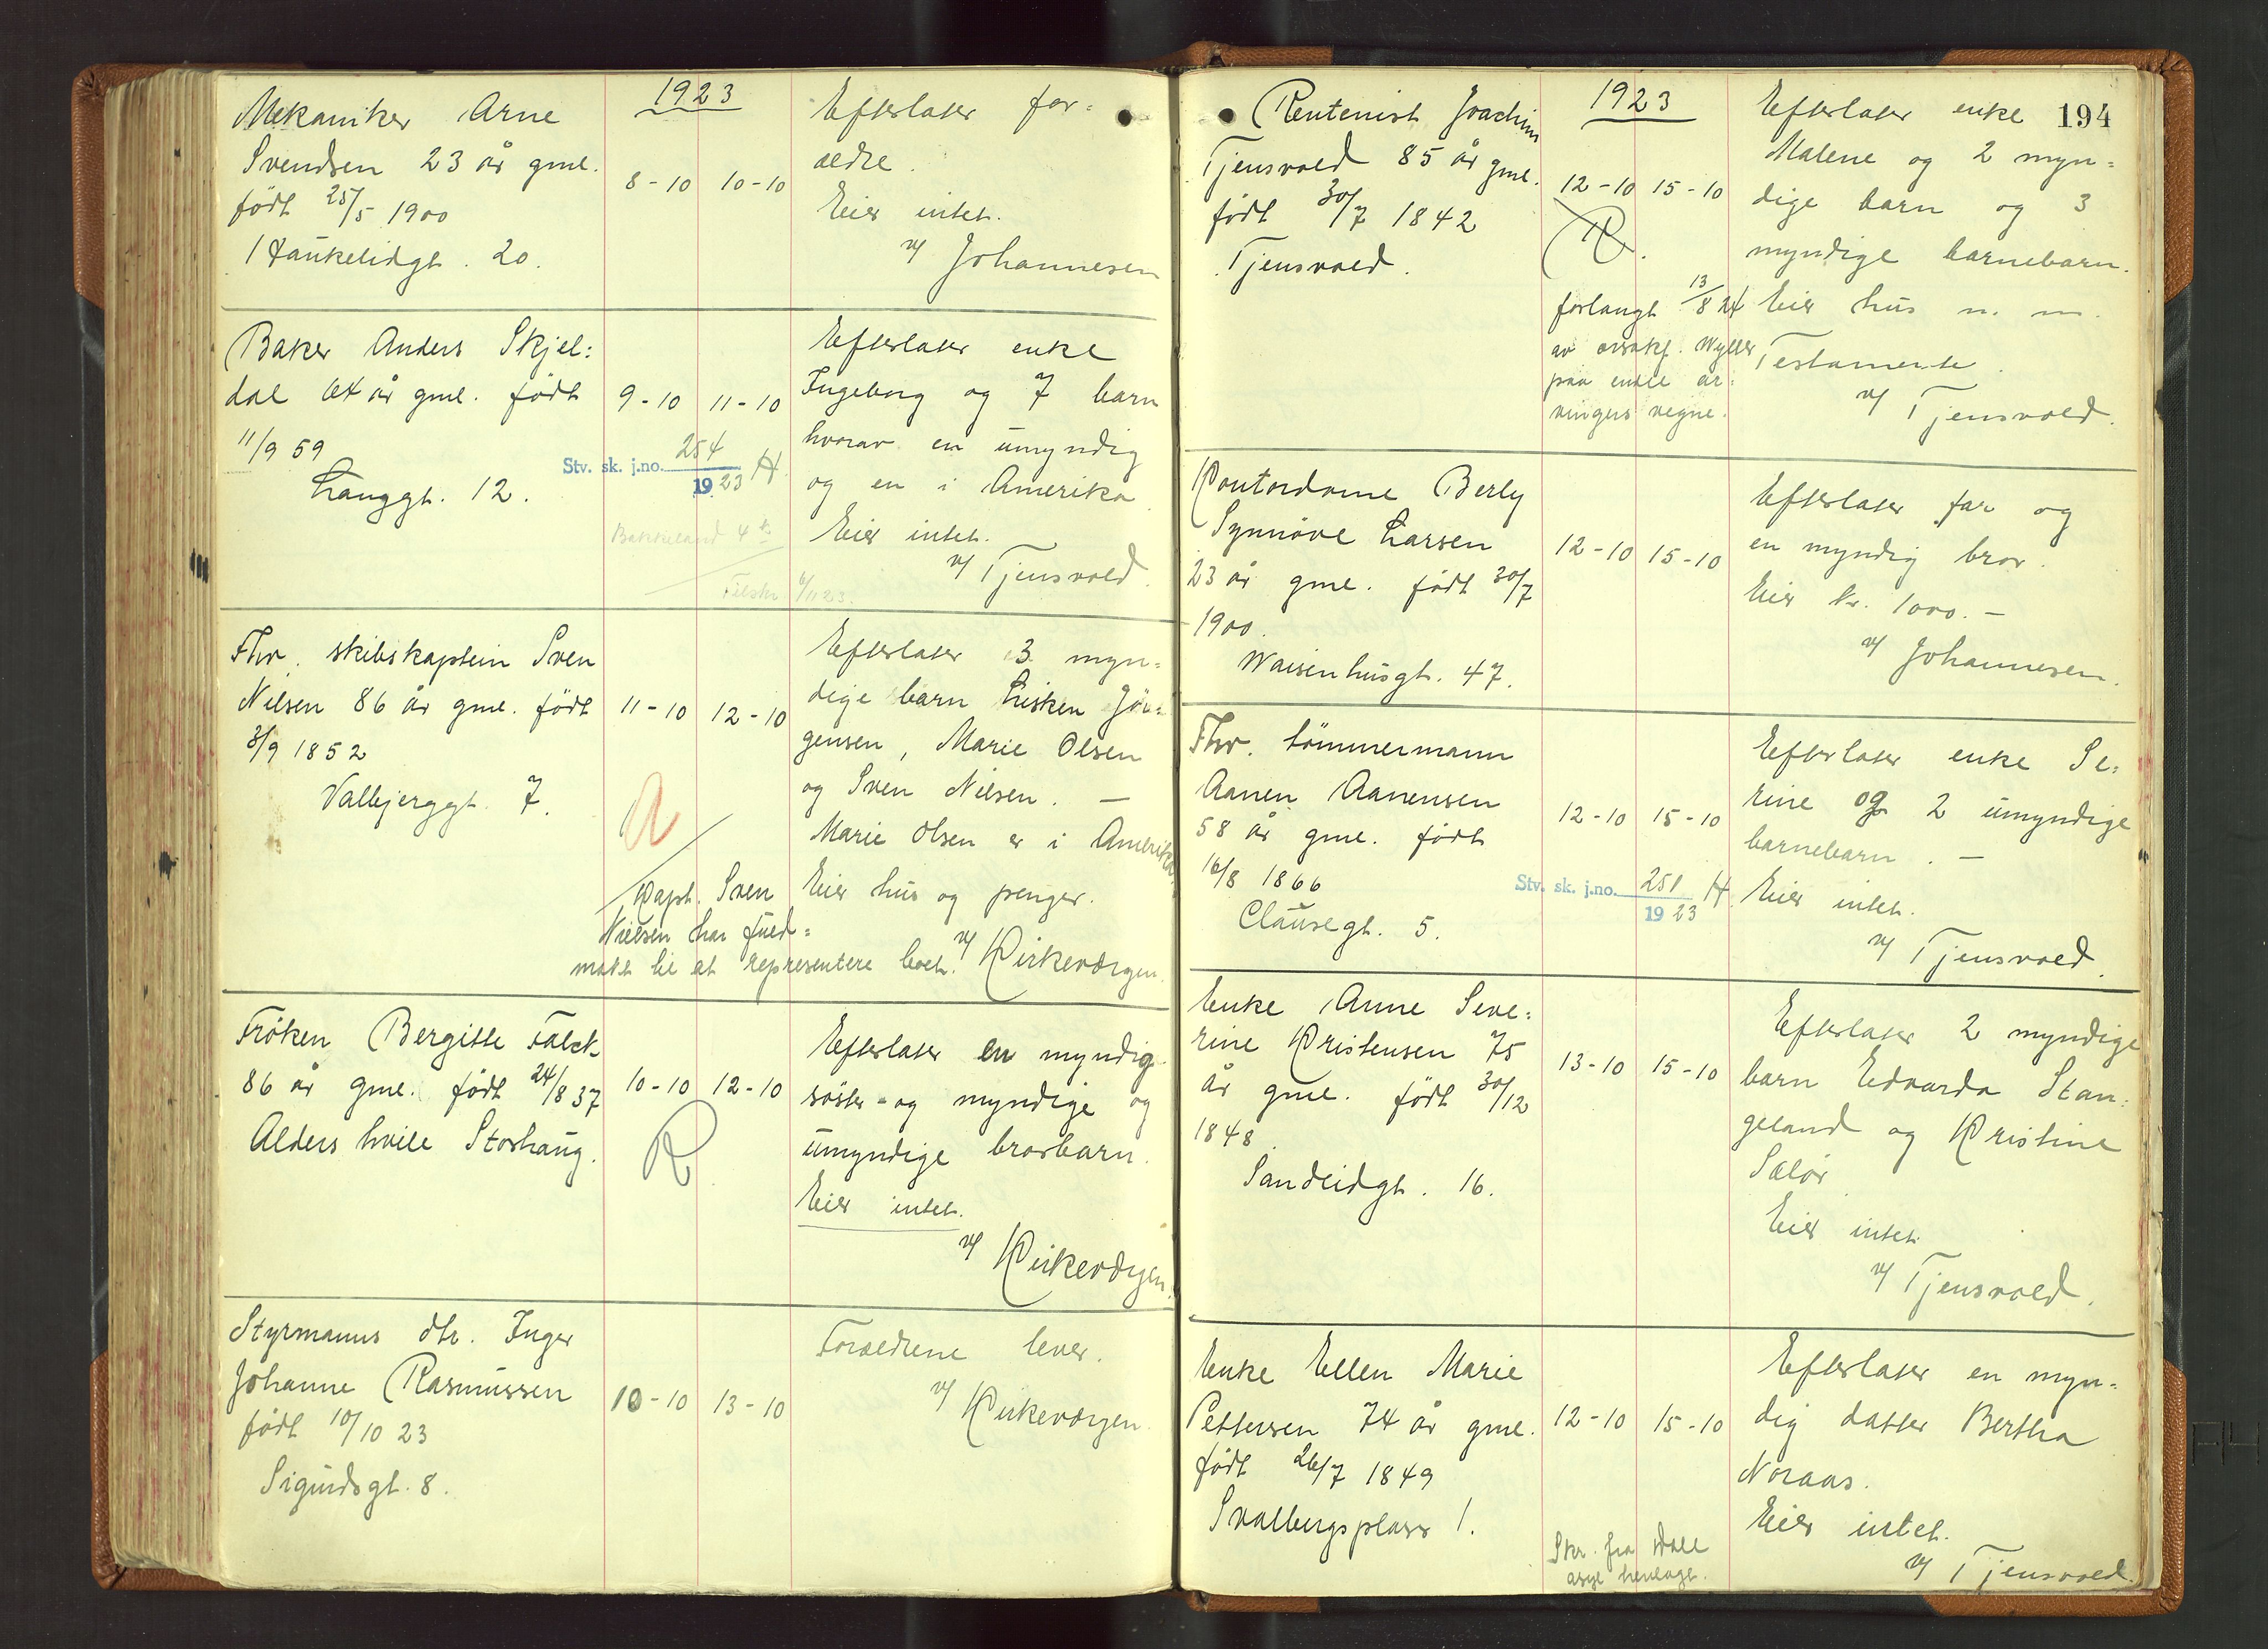 1923
Mekaniker Arne
Svendsen 23 år gml.
født 25/5 1900
Haukelidgt. 20.
8-10 10-10
Efterlater for=
ældre.
Eier intet.
v/ Johannesen
Baker Anders Skjel=
dal 64 år gml. født
11/9 59
Langgt. 12.
9-10 11-10
Stv. sk. j.no. 254 H.
1923
Bakkeland 4
6/11 23.
Efterlater enke
Ingeborg og 7 barn
hvorav en umyndig
og en i Amerika
Eier intet.
v/ Tjensvold.
Fhv. skibskaptein Sven
Nilsen 86 år gml. født
3/9 1852
Valbjerggt. 7.
11-10 12-10
Kapt. Sven
Nielsen har fuld=
makt til at representere boet.
Efterlater 3 myn=
dige barn Lisken Jör=
gensen, Marie Olsen
og Sven Nilsen. —
Marie Olsen er i Amerika.
Eier hus og penger.
v/ Kirkeværgen.
Fröken Bergitte Falck
86 år gml. født 24/8 37
Alders hvile Storhaug.
10-10 12-10
R
Efterlater en myndig
søster og myndige og
umyndige brorbarn.
Eier intet.
v/ Kirkeværgen.
Styrmanns dtr. Inger
Johanne Rasmussen
født 10/10 23
Sigurdsgt. 8.
10-10 13-10
Forældrene lever.
v/ Kirkeværgen
194
1923
Rentenist Joachim
Tjensvold 85 år gml.
født 30/7 1842
Tjensvold.
12-10 15-10
R.
forlangt 13/8 24
av orsakf. Wyller
paa endel ar=
vingers vegne.
Efterlater enke
Malene og 2 myn=
dige barn og 3
myndige barnebarn.
Eier hus m. m.
Testamente.
v/ Tjensvold.
Kontordame Berly
Synnöve Larsen
23 år gml. født 30/7
1900.
Waisenhusgt. 47.
12-10 15-10
Efterlater far og
en myndig bror.
Eier kr. 1000.—
v/ Johannesen.
Fhv. tömmermann
Aanen Aanensen
58 år gml. født
16/8 1866
Clausegt. 5.
12-10 15-10
Stv. sk. j.no. 251 H.
1923
Efterlater enke Se=
rine og 2 umyndige
barnebarn. —
Eier intet.
v/ Tjensvold.
Enke Anne Seve=
rine Kristensen 75
år gml. født 30/12
1848.
Sandeidgt. 16.
13-10 15-10
Efterlater 2 myndige
barn Edvarda Stan=
geland og Kristine
Sælör
Eier intet.
v/ Tjensvold.
Enke Ellen Marie
Pettersen 74 år gml.
født 26/7 1849
Svalbergsplass 1.
12-10 15-10
Skr. fra Dale
asyl henlagt.
Efterlater en myn=
dig datter Bertha
Noraas.
Eier intet.
v/ Tjensvold.